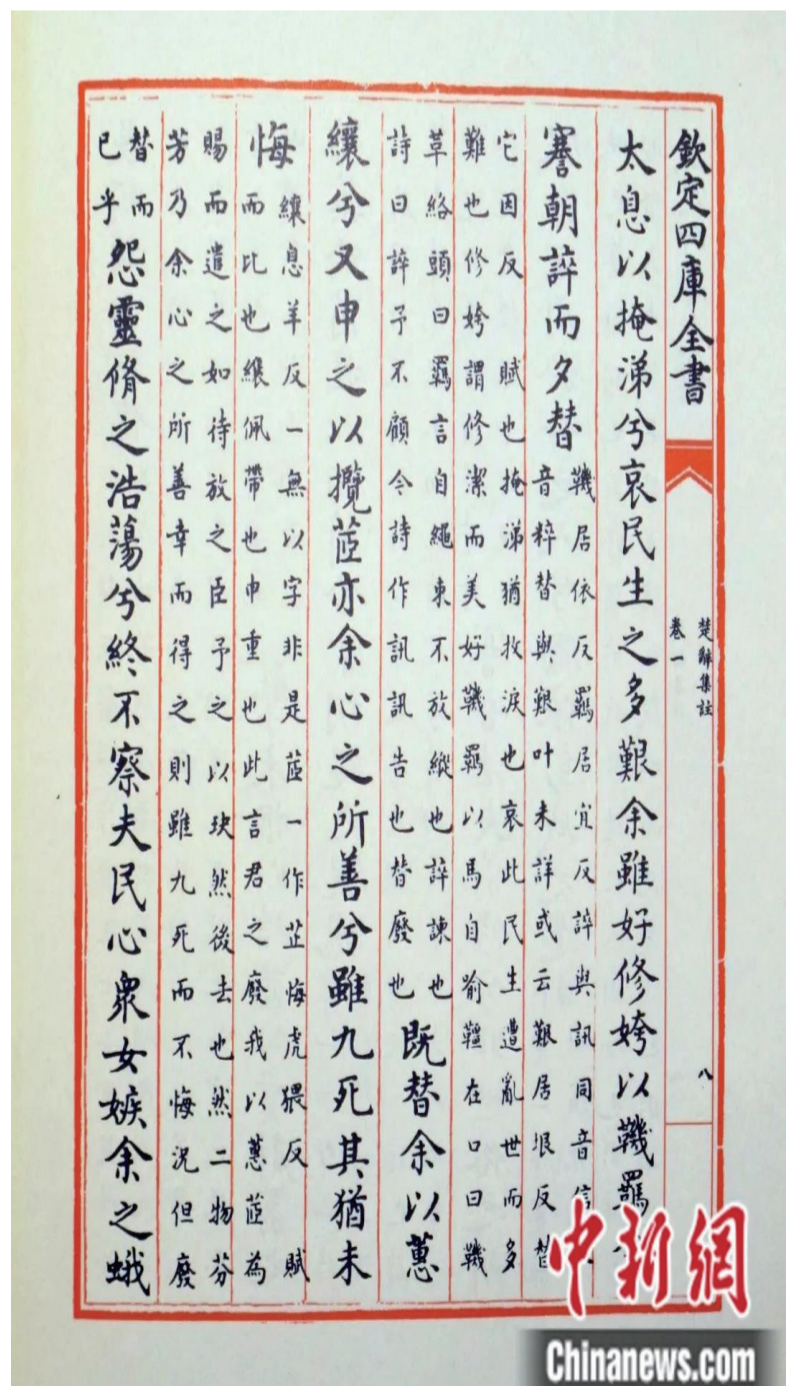 欽定四庫全書
楚辭集註
卷一
八
太息以掩涕兮哀民生之多艱余雖好修姱以鞿羈
謇朝誶而夕替
鞿居依反羈居宜反誶與訊同音信
音粹替與艱叶未詳或云艱居垠反替
它因反 賦也掩涕猶抆淚也哀此民生遭亂世而多
難也修姱謂修潔而美好鞿羈以馬自喻韁在口曰鞿
草絡頭曰羈言自繩束不放縱也誶諫也
詩曰誶予不顧今詩作訊訊告也替廢也
既替余以蕙
纕兮又申之以攬茝亦余心之所善兮雖九死其猶未
悔
纕息羊反一無以字非是茝一作芷悔虎猥反 賦
而比也纕佩帶也申重也此言君之廢我以蕙茝為
賜而遣之如待放之臣予之以玦然後去也然二物芬
芳乃余心之所善幸而得之則雖九死而不悔況但廢
替而
已乎
怨靈脩之浩蕩兮終不察夫民心衆女嫉余之蛾
中新網
Chinanews.com